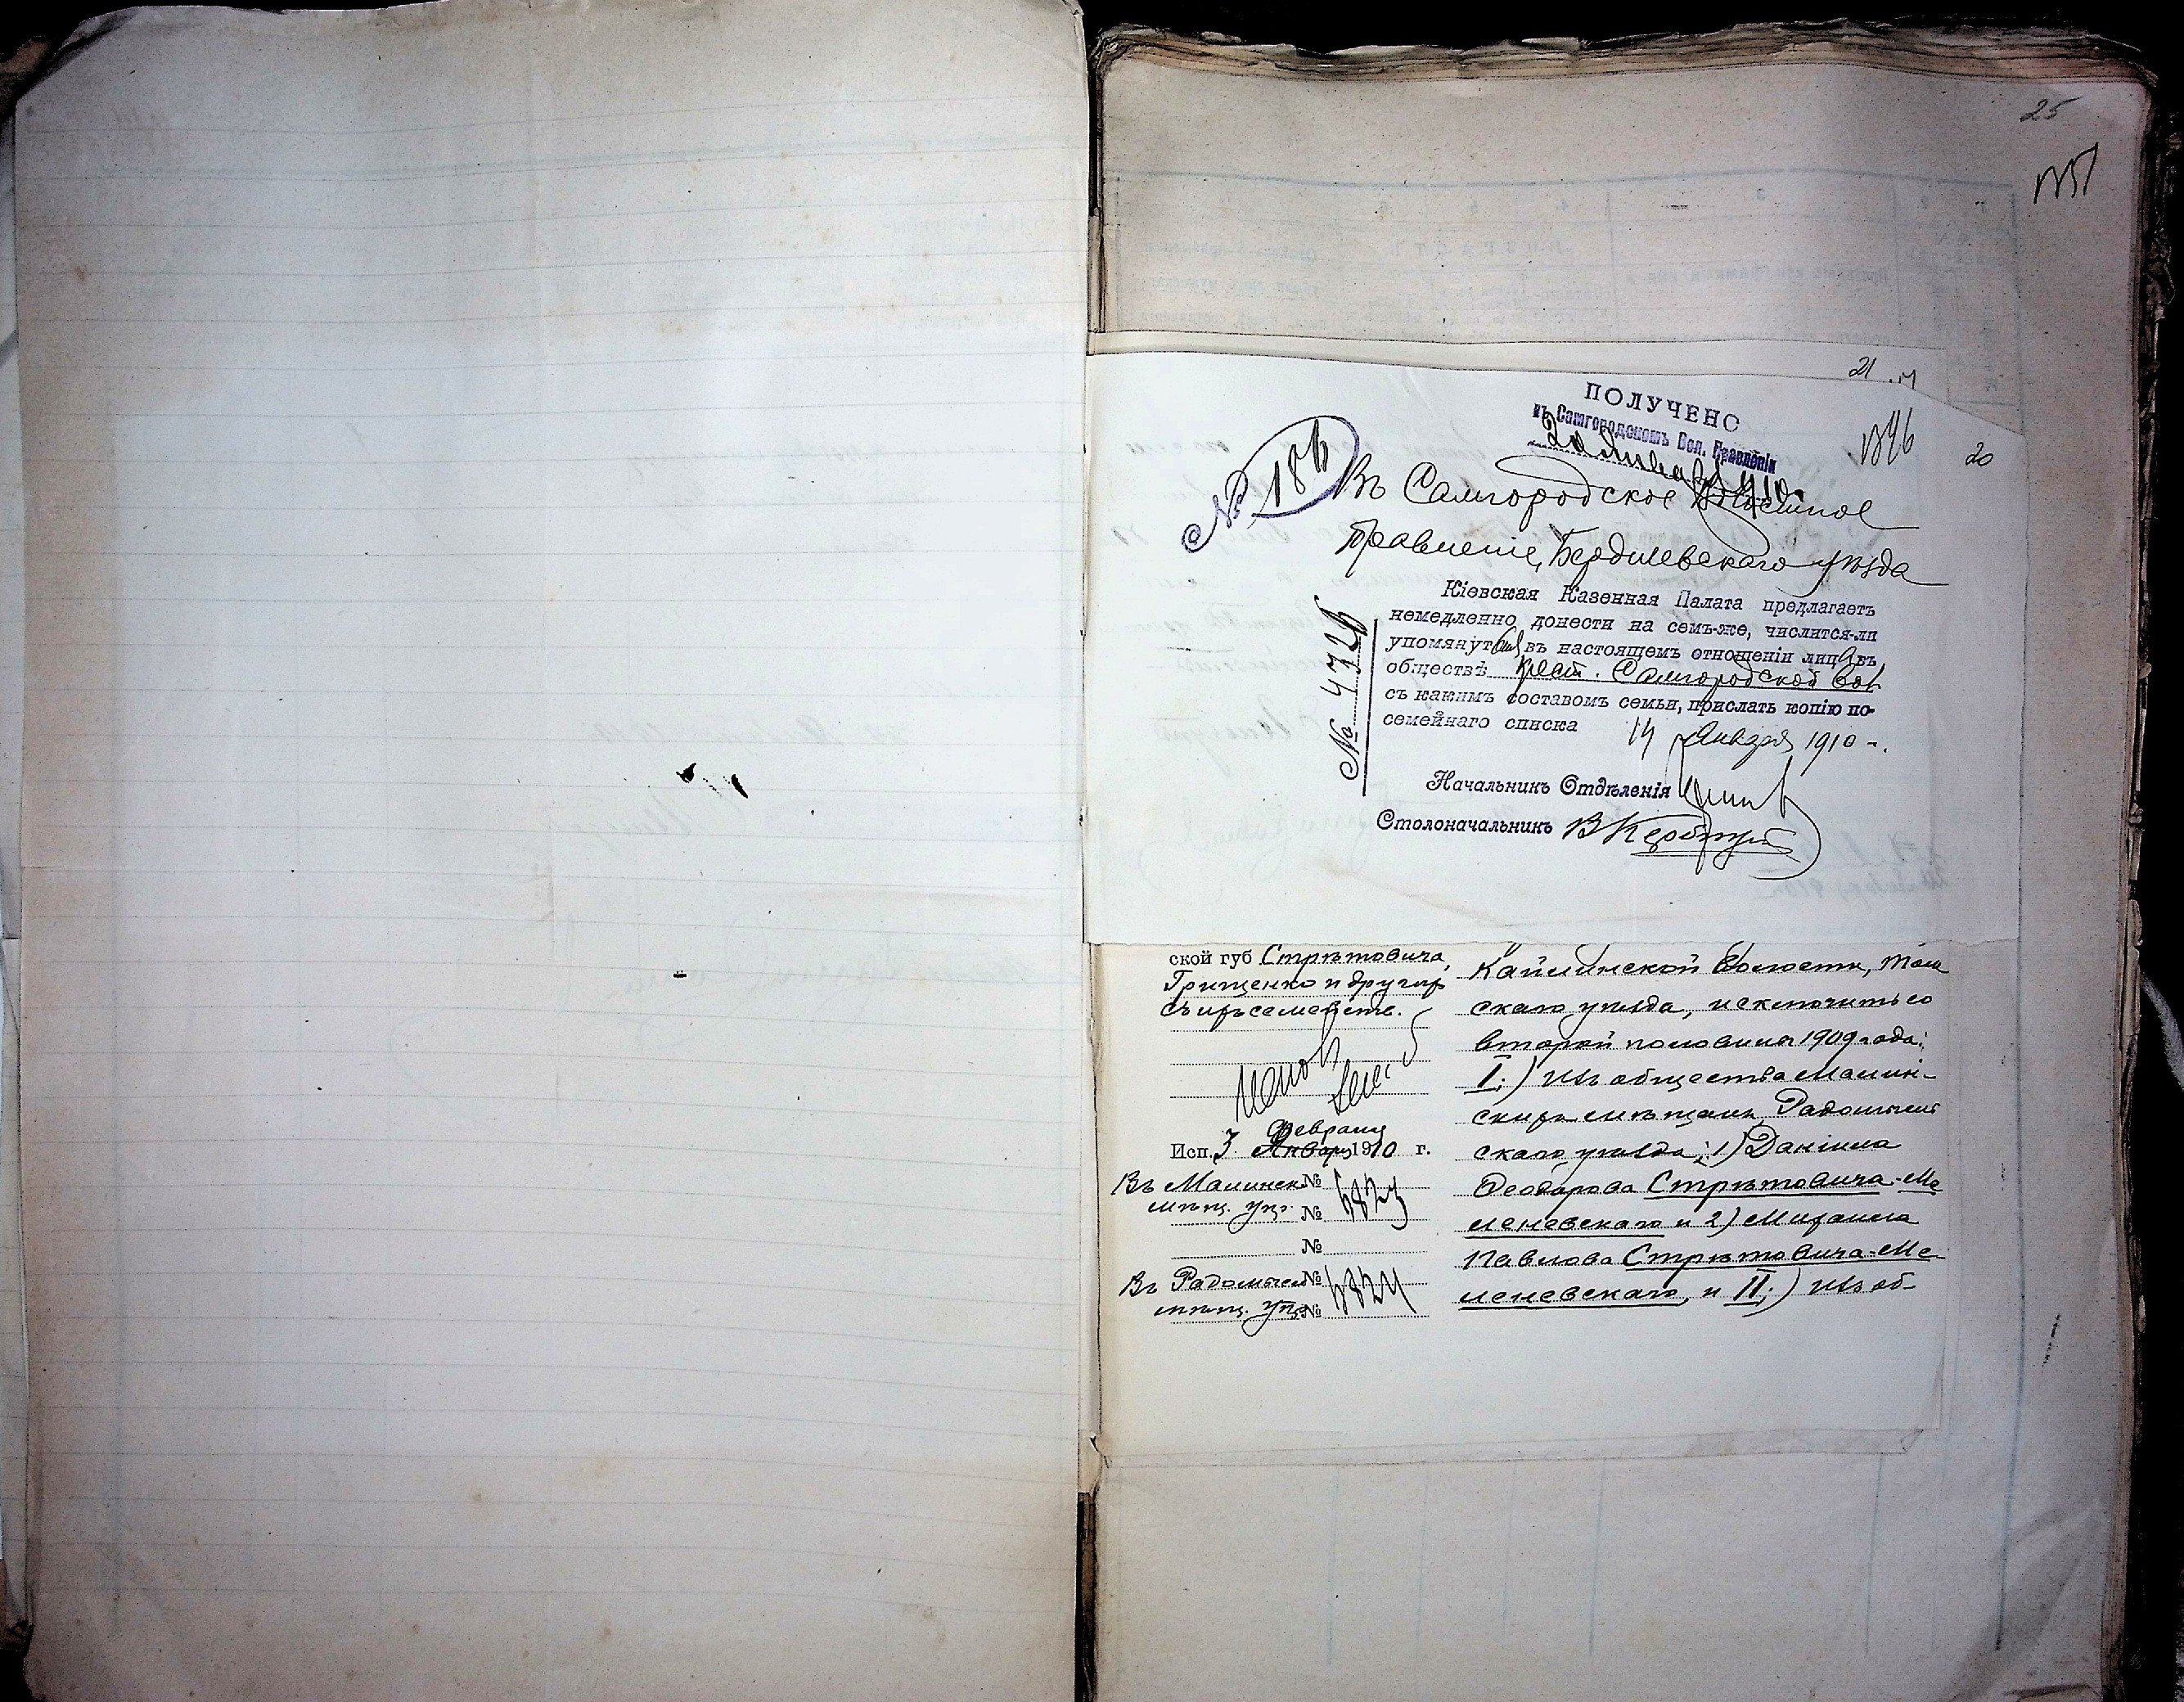 25
21
ПОЛУЧЕНО
въ Самгородскомъ Вол. Правленіи
1846
20
№ 186
Въ Самгородское Волостное
Правленіе, Бердичевскаго уѣзда
Кіевская Казенная Палата предлагаетъ
немедленно донести на семъ-же, числится-ли
упомянутыя въ настоящемъ отношеніи лица въ
обществѣ крест. Самгородской вол.
съ какимъ составомъ семьи, прислать копію по-
семейнаго списка
14 Января 1910 г.
№ 4726
Начальникъ Отдѣленія
Столоначальникъ
ской губ Стрѣтовича,
Грищенко и другихъ
съ ихъ семейств.
Исп. 3 Февраля
Января 1910 г.
Въ Малинск №
мѣщ. упр. № 4823
№
Въ Радомысл №
мѣщ. упр. № 4824
Кайлинской волости, Том
скаго уѣзда, исключить со
второй половины 1909 года:
I;) изъ общества Малин-
скихъ мѣщанъ, Радомысль
скаго уѣзда: 1) Даніила
Ѳеодорова Стрѣтовича-Ме
леневскаго и 2) Михаила
Павлова Стрѣтовича-Ме-
леневскаго, и II;) изъ об-